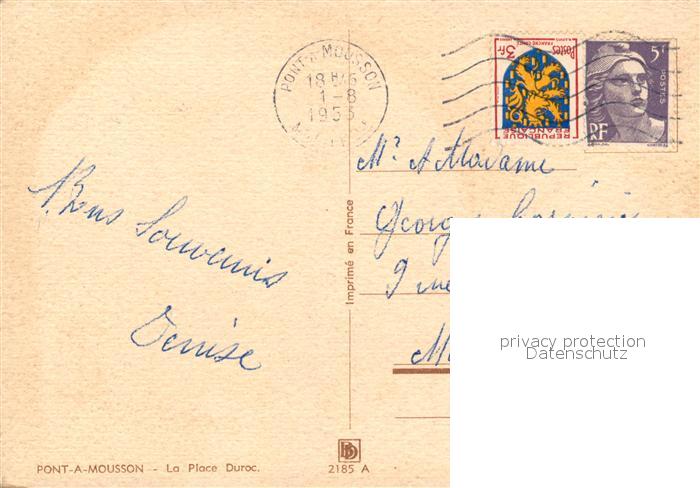 PONT-A-MOUSSON
18 H 45
1-8
1953
3fr Postes
FRANCHE-COMTÉ
REPUBLIQUE
FRANÇAISE
5f
POSTES
RF
Mr & Madame
Georges
9 rue
Bons Souvenirs
Denise
Imprimé en France
privacy protection
Datenschutz
PONT-A-MOUSSON - La Place Duroc.
2185 A